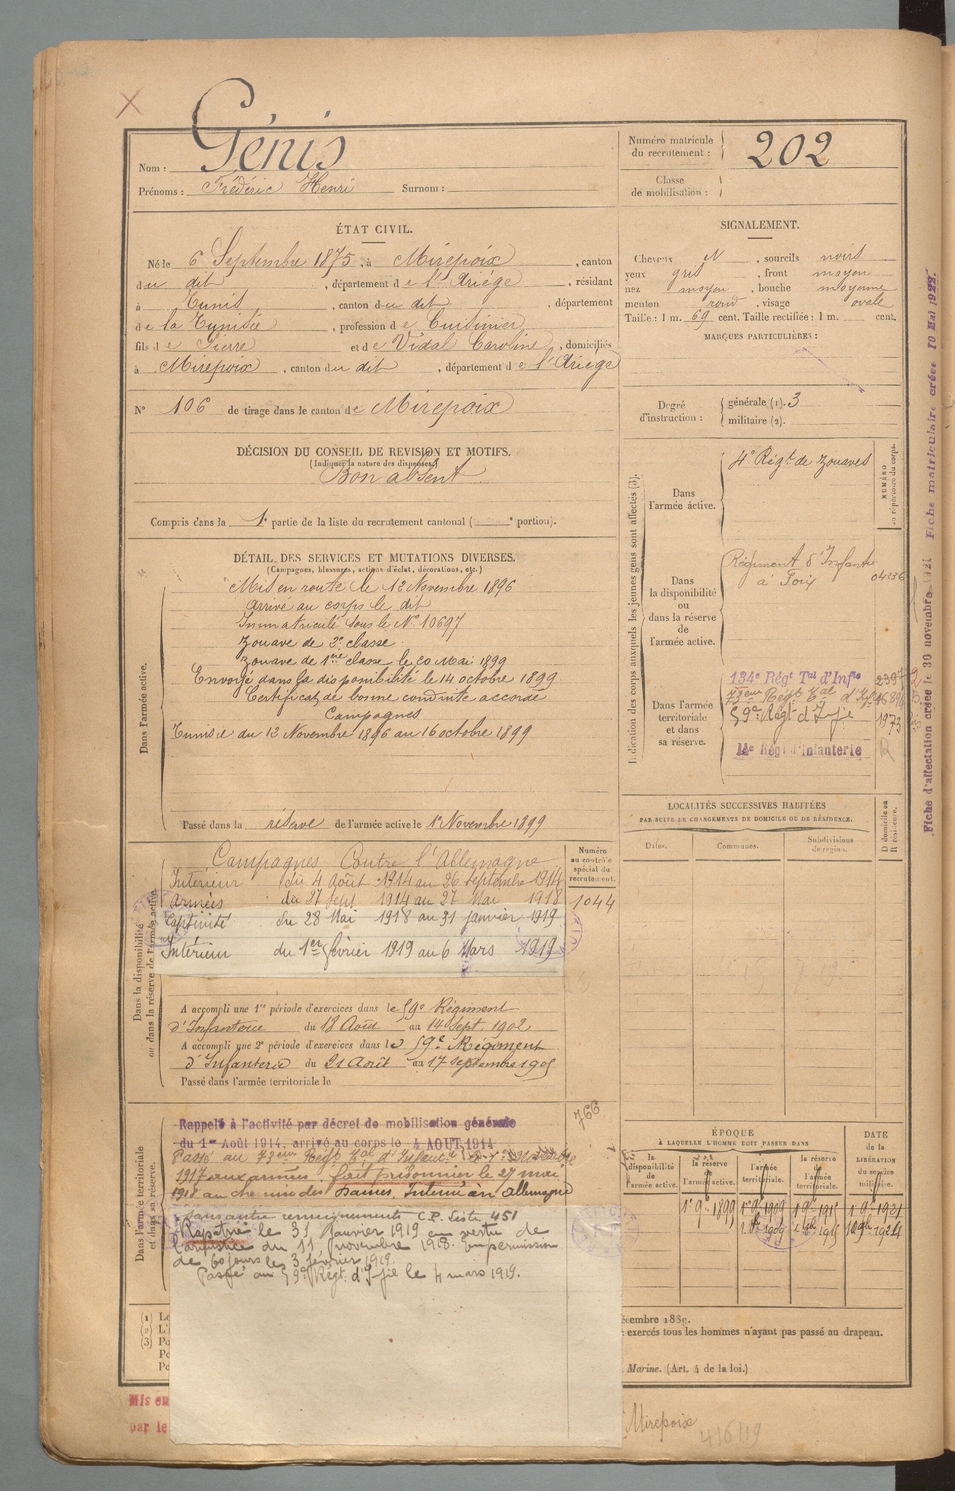 Nom : Génis
Prénoms : Frédéric Henri Surnom :
Numéro matricule du recrutement : 202
Classe de mobilisation :
ÉTAT CIVIL.
Né le 6 Septembre 1875, à Mirepoix, canton
du dit, département de l'Ariége, résidant
à Tunis, canton du dit, département
de la Tunisie, profession de Cuisinier
fils de Pierre et de Vidal Caroline, domiciliés
à Mirepoix, canton du dit, département de l'Ariége
N° 106 de tirage dans le canton de Mirepoix
SIGNALEMENT.
Cheveux N, sourcils noirs
yeux gris, front moyen
nez moyen, bouche moyenne
menton rond, visage ovale
Taille : 1 m. 69 cent. Taille rectifiée : 1 m. cent.
MARQUES PARTICULIÈRES :
Degré d'instruction : générale (1). 3
militaire (2).
DÉCISION DU CONSEIL DE REVISION ET MOTIFS.
(Indiquer la nature des dispenses.)
Bon absent
Compris dans la 1e partie de la liste du recrutement cantonal ( e portion).
DÉTAIL DES SERVICES ET MUTATIONS DIVERSES.
(Campagnes, blessures, actions d'éclat, décorations, etc.)
Dans l'armée active.
Mis en route le 12 Novembre 1896
arrivé au corps le dit
Immatriculé sous le N° 10697
Zouave de 2e classe
Zouave de 1ère classe le 20 Mai 1899
Envoyé dans la disponibilité le 14 octobre 1899
Certificat de bonne conduite accordé
Campagnes
Tunisie du 12 Novembre 1896 au 16 octobre 1899
Passé dans la réserve de l'armée active le 1er Novembre 1899
Indication des corps auxquels les jeunes gens sont affectés (3).
NUMÉRO au répertoire du corps.
Dans l'armée active. 4e Régt de Zouaves
Dans la disponibilité ou dans la réserve de l'armée active. Régiment d'Infantie
à Foix
Dans l'armée territoriale et dans sa réserve. 134e Régt Tal d'Infie
73ème Régt Tal d'Inf.
59e Régt d'Infie 1973
14e Régt d'Infanterie
Fiche d'affectation créée le 30 novembre 1921 Fiche matriculaire créée 10 Mai 1922.
LOCALITÉS SUCCESSIVES HABITÉES
PAR SUITE DE CHANGEMENTS DE DOMICILE OU DE RÉSIDENCE.
D domicile ou R résidence.
Dates. Communes. Subdivisions de région.
Numéro au contrôle spécial du recrutement.
1044
Dans la disponibilité ou dans la réserve de l'armée active.
Campagnes Contre l'Allemagne
Intérieur du 4 Août 1914 au 26 septembre 1914
Armées du 27 sept 1914 au 27 Mai 1918
Captivité du 28 Mai 1918 au 31 janvier 1919
Intérieur du 1er février 1919 au 6 Mars 1919
A accompli une 1re période d'exercices dans le 59e Régiment
d'Infanterie du 18 Août au 14 Sept. 1902
A accompli une 2e période d'exercices dans le 59e Régiment
d'Infanterie du 21 Août au 17 septembre 1905
Passé dans l'armée territoriale le
Dans l'armée territoriale et dans sa réserve.
766
Rappelé à l'activité par décret de mobilisation générale
du 1er Août 1914, arrivé au corps le 4 AOUT 1914
Passé au 73ème Régt Tal d'Infanterie
1917 aux armées. fait prisonnier le 27 mai
1918 au chemin des Dames, Interné en Allemagne
sans autre renseignements C.P. Liste 451
Rapatrié le 31 Janvier 1919 en vertu de
l'armistice du 11 novembre 1918. En permission
de 60 jours le 3 février 1919.
Passé au 59e Régt. d'Infie le 4 mars 1919.
ÉPOQUE
À LAQUELLE L'HOMME DOIT PASSER DANS
DATE de la LIBÉRATION du service militaire.
la disponibilité de l'armée active. la réserve de l'armée active. l'armée territoriale. la réserve de l'armée territoriale.
1er 9bre 1899 1er 9bre 1909 1er 9bre 1915 1er 9bre 1921
(1)
(2)
(3)
décembre 1889.
exercés tous les hommes n'ayant pas passé au drapeau.
Marine. (Art. 4 de la loi.)
Mis en
par le
Mirepoix